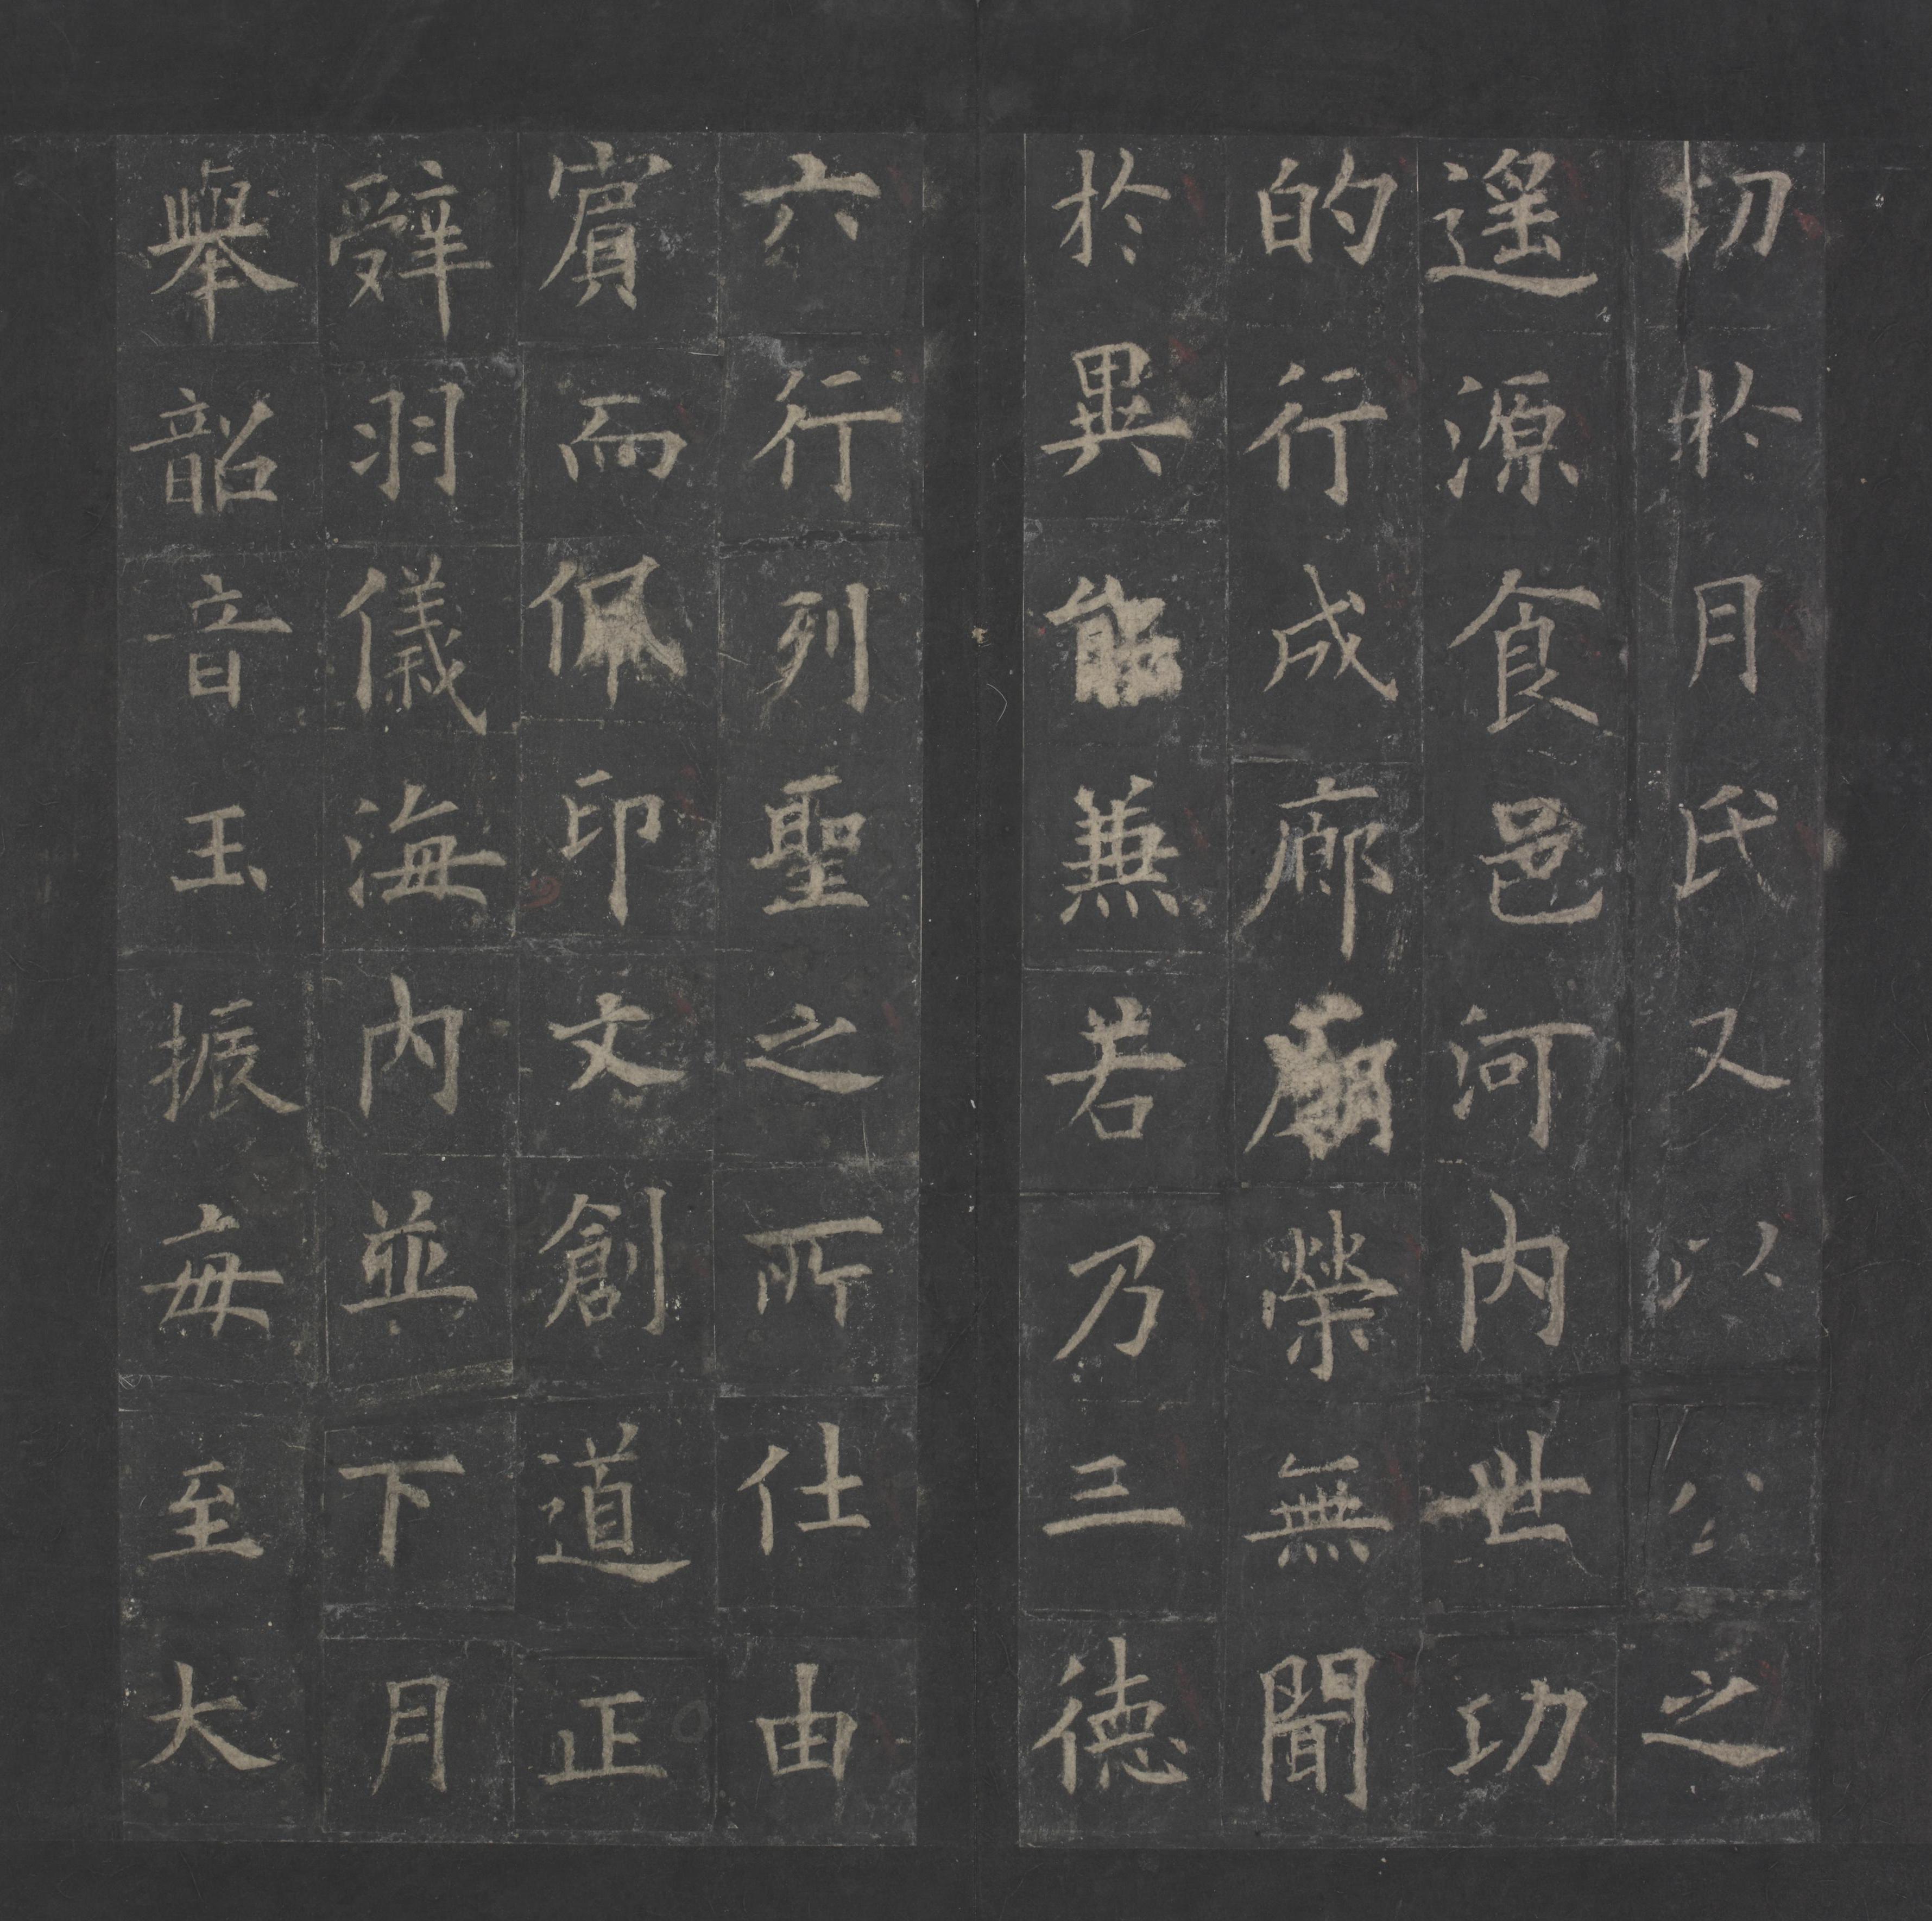 切於月氏又以公之
遥源食邑河内世功
的行成廊廟榮無聞
於異能兼若乃三德
六行列聖之所仕由
賔而佩印文創道正
辤羽儀海内並下月
舉韶音玉振每至大